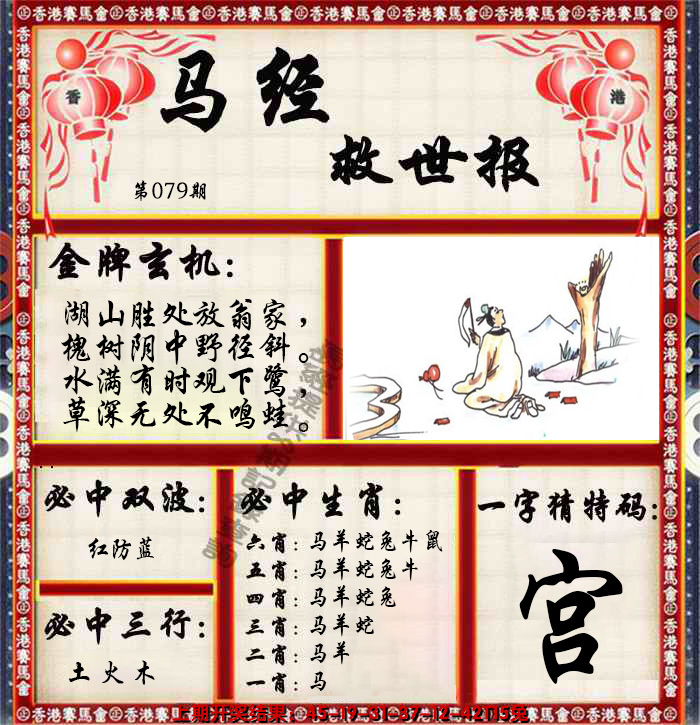 香港賽馬會㊣香港賽馬會㊣香港賽馬會㊣香港賽馬會㊣香港賽馬會㊣香港賽馬會
香
港
马经
救世报
第079期
金牌玄机:
湖山胜处放翁家，
槐树阴中野径斜。
水满有时观下鹭，
草深无处不鸣蛙。
必中双波:
红防蓝
必中三行:
土火木
必中生肖:
六肖:马羊蛇兔牛鼠
五肖:马羊蛇兔牛
四肖:马羊蛇兔
三肖:马羊蛇
二肖:马羊
一肖:马
一字猜特码:
宫
上期开奖结果:45-19-31-37-12-42T15兔